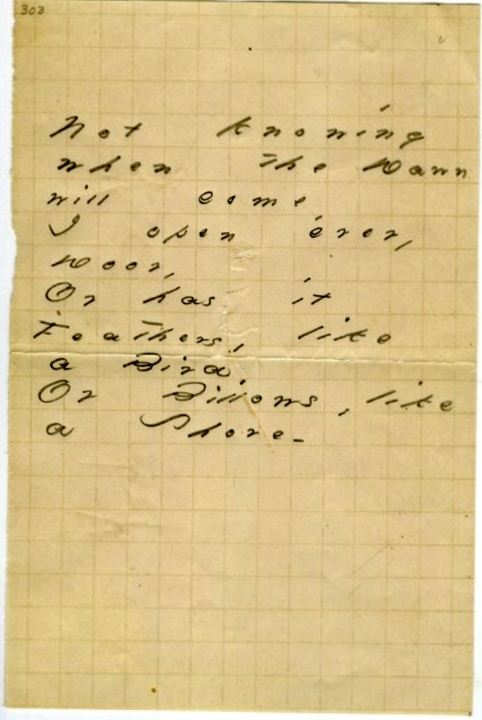 303
Not knowing
when the Dawn
will come
I open every
Door,
Or has it
Feathers, like
a Bird
Or Billows, like
a Shore-